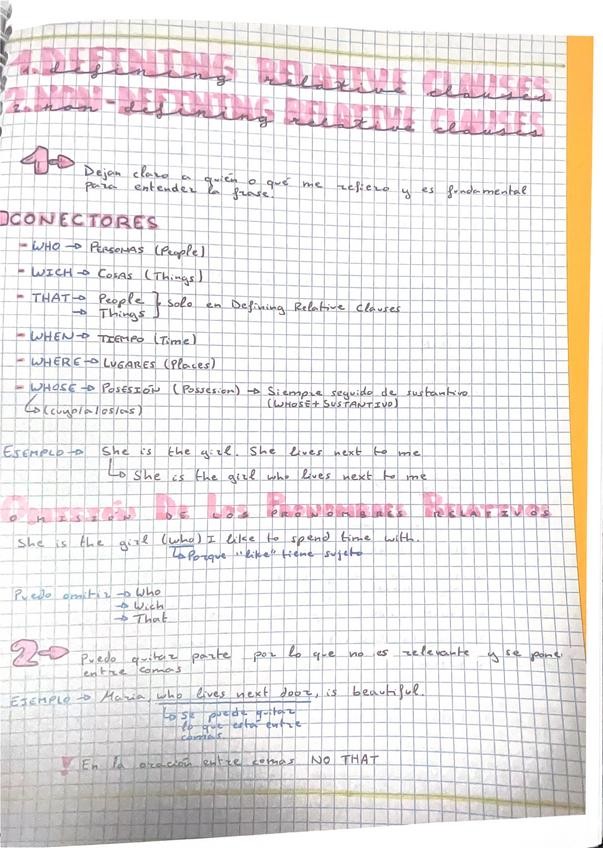 1. DEFINING RELATIVE CLAUSES
defining relative clauses
2. NON-DEFINING RELATIVE CLAUSES
non-defining relative clauses
1→ Dejan claro a quién o qué me refiero y es fundamental
para entender la frase.
CONECTORES
- WHO → PERSONAS (People)
- WICH → COSAS (Things)
- THAT → People } Solo en Defining Relative Clauses
→ Things
- WHEN → TIEMPO (Time)
- WHERE → LUGARES (Places)
- WHOSE → POSESIÓN (Possesion) → Siempre seguido de sustantivo
↳ (cuyo/a/os/as) (WHOSE + SUSTANTIVO)
EJEMPLO → She is the girl. She lives next to me
↳ She is the girl who lives next to me
OMISIÓN DE LOS PRONOMBRES RELATIVOS
OMISIÓN DE LOS PRONOMBRES RELATIVOS
She is the girl (who) I like to spend time with.
↳ Porque "like" tiene sujeto
Puedo omitir → Who
→ Wich
→ That
2→ Puedo quitar parte por lo que no es relevante y se pone
entre comas
EJEMPLO → Maria, who lives next door, is beautiful.
↳ se puede quitar
lo que está entre
comas
! En la oración entre comas NO THAT